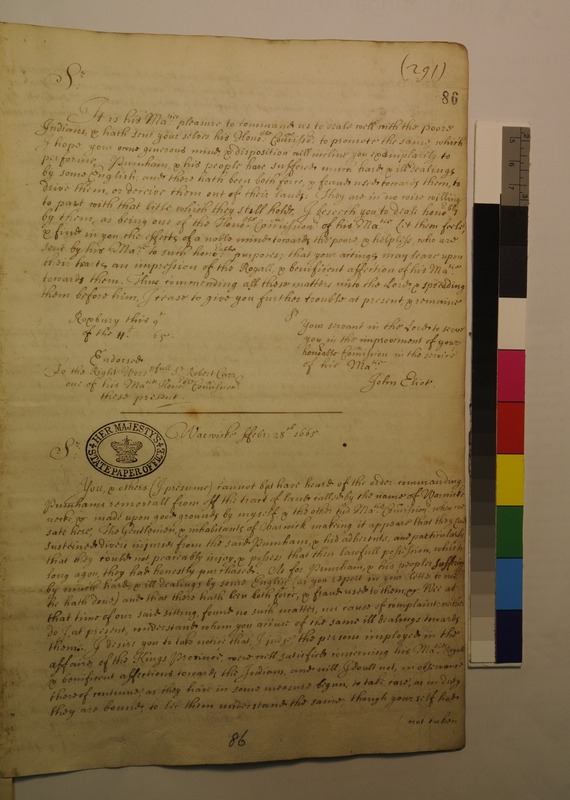 (291)
86
Sr
It is his Matie pleasure to command us to deale well with the poore
Indians, & hath sent your selves his Honoble Comissrs to promote the same, which
I hope your owne generous mind & disposition will incline you exemplarily to
performe. Pumham & his people have suffered much hard & ill dealings
by some English, and there hath been both force, & fraud used towards them, to
drive them, or deceive them out of their lands. They are in no wise willing
to part with that little which they still hold. I beseech you to deale honobly
by them, as being one of the Honoble Comissionrs of his Matie let them feele,
& find in you the effects of a noble mind towards the poore & helpless, who are
sent by his Matie to such honoble purposes; that your actings may leave upon
their hearts an impression of the Royall, & benificient affection of his Matie
towards them. Thus comending all these matters unto the Lord & spreading
them before him, I cease to give you further trouble at present, & remaine
Roxbury this 9
of the 11th 65.
Sr
Your servant in the Lord to serve
you in the improvement of your
honorable Comission in the service
of his Matie
John Eliot.
Endorsed
To the Right Worpfull Sr Robert Carr
one of his Maties Honoble Comissionrs
these present
Warwick Febr: 28th 1665
HER MAJESTY'S
STATE PAPER OFFICE
Sr
You, & others (I presume) cannot but have heard of the order commanding
Pumhams removall from off the tract of land called by the name of Warwick
neck, & made upon good grounds by myself & the other his Maties Comissionrs when we
sate here, The Gentlemen & inhabitants of Warwick making it appeare that they had
susteined divers injuries from the said Pumham, & his adherents, and particularly
that they could not peaceably injoy, & possess that their lawfull possession, which
long agoe, they had honestly purchased. As for Pumham, & his peoples suffering
by much hard, & ill dealings by some English (as you report in your letter to me
he hath done) and that there hath been both force, & fraud used to them, &c We at
that time of our said sitting, found no such matter, nor cause of complaint, neither
do I at present, understand whom you accuse of the same ill dealings towards
them. I desire you to take notice that I judge the persons imployed in the
affaires of the Kings Province, were well satisfied concerning his Maties Royall
& benificient affections towards the Indians, and will I doubt not, in observance
thereof continue, as they have in some measure begun, to take care, as in duty
they are bound, to let them understand the same, though yourself had
not taken
86